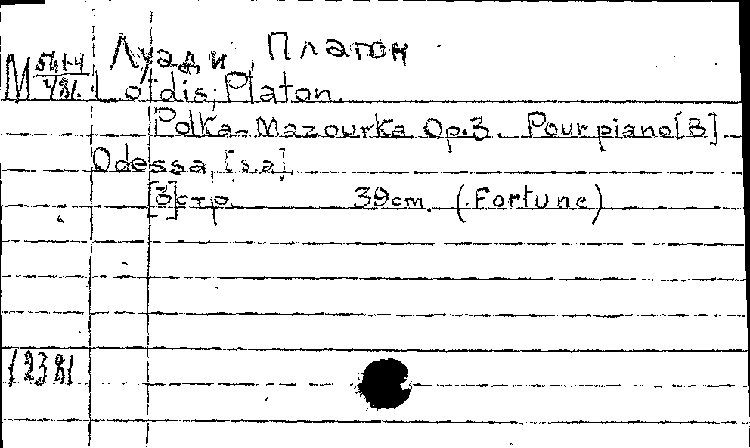 Луади, Платон
M 541-4/781. Loidis, Platon.
Polka-Mazourka Op.3. Pour piano [B]
Odessa, [s.a].
[3] стр. 39cm. (Fortune)
12381